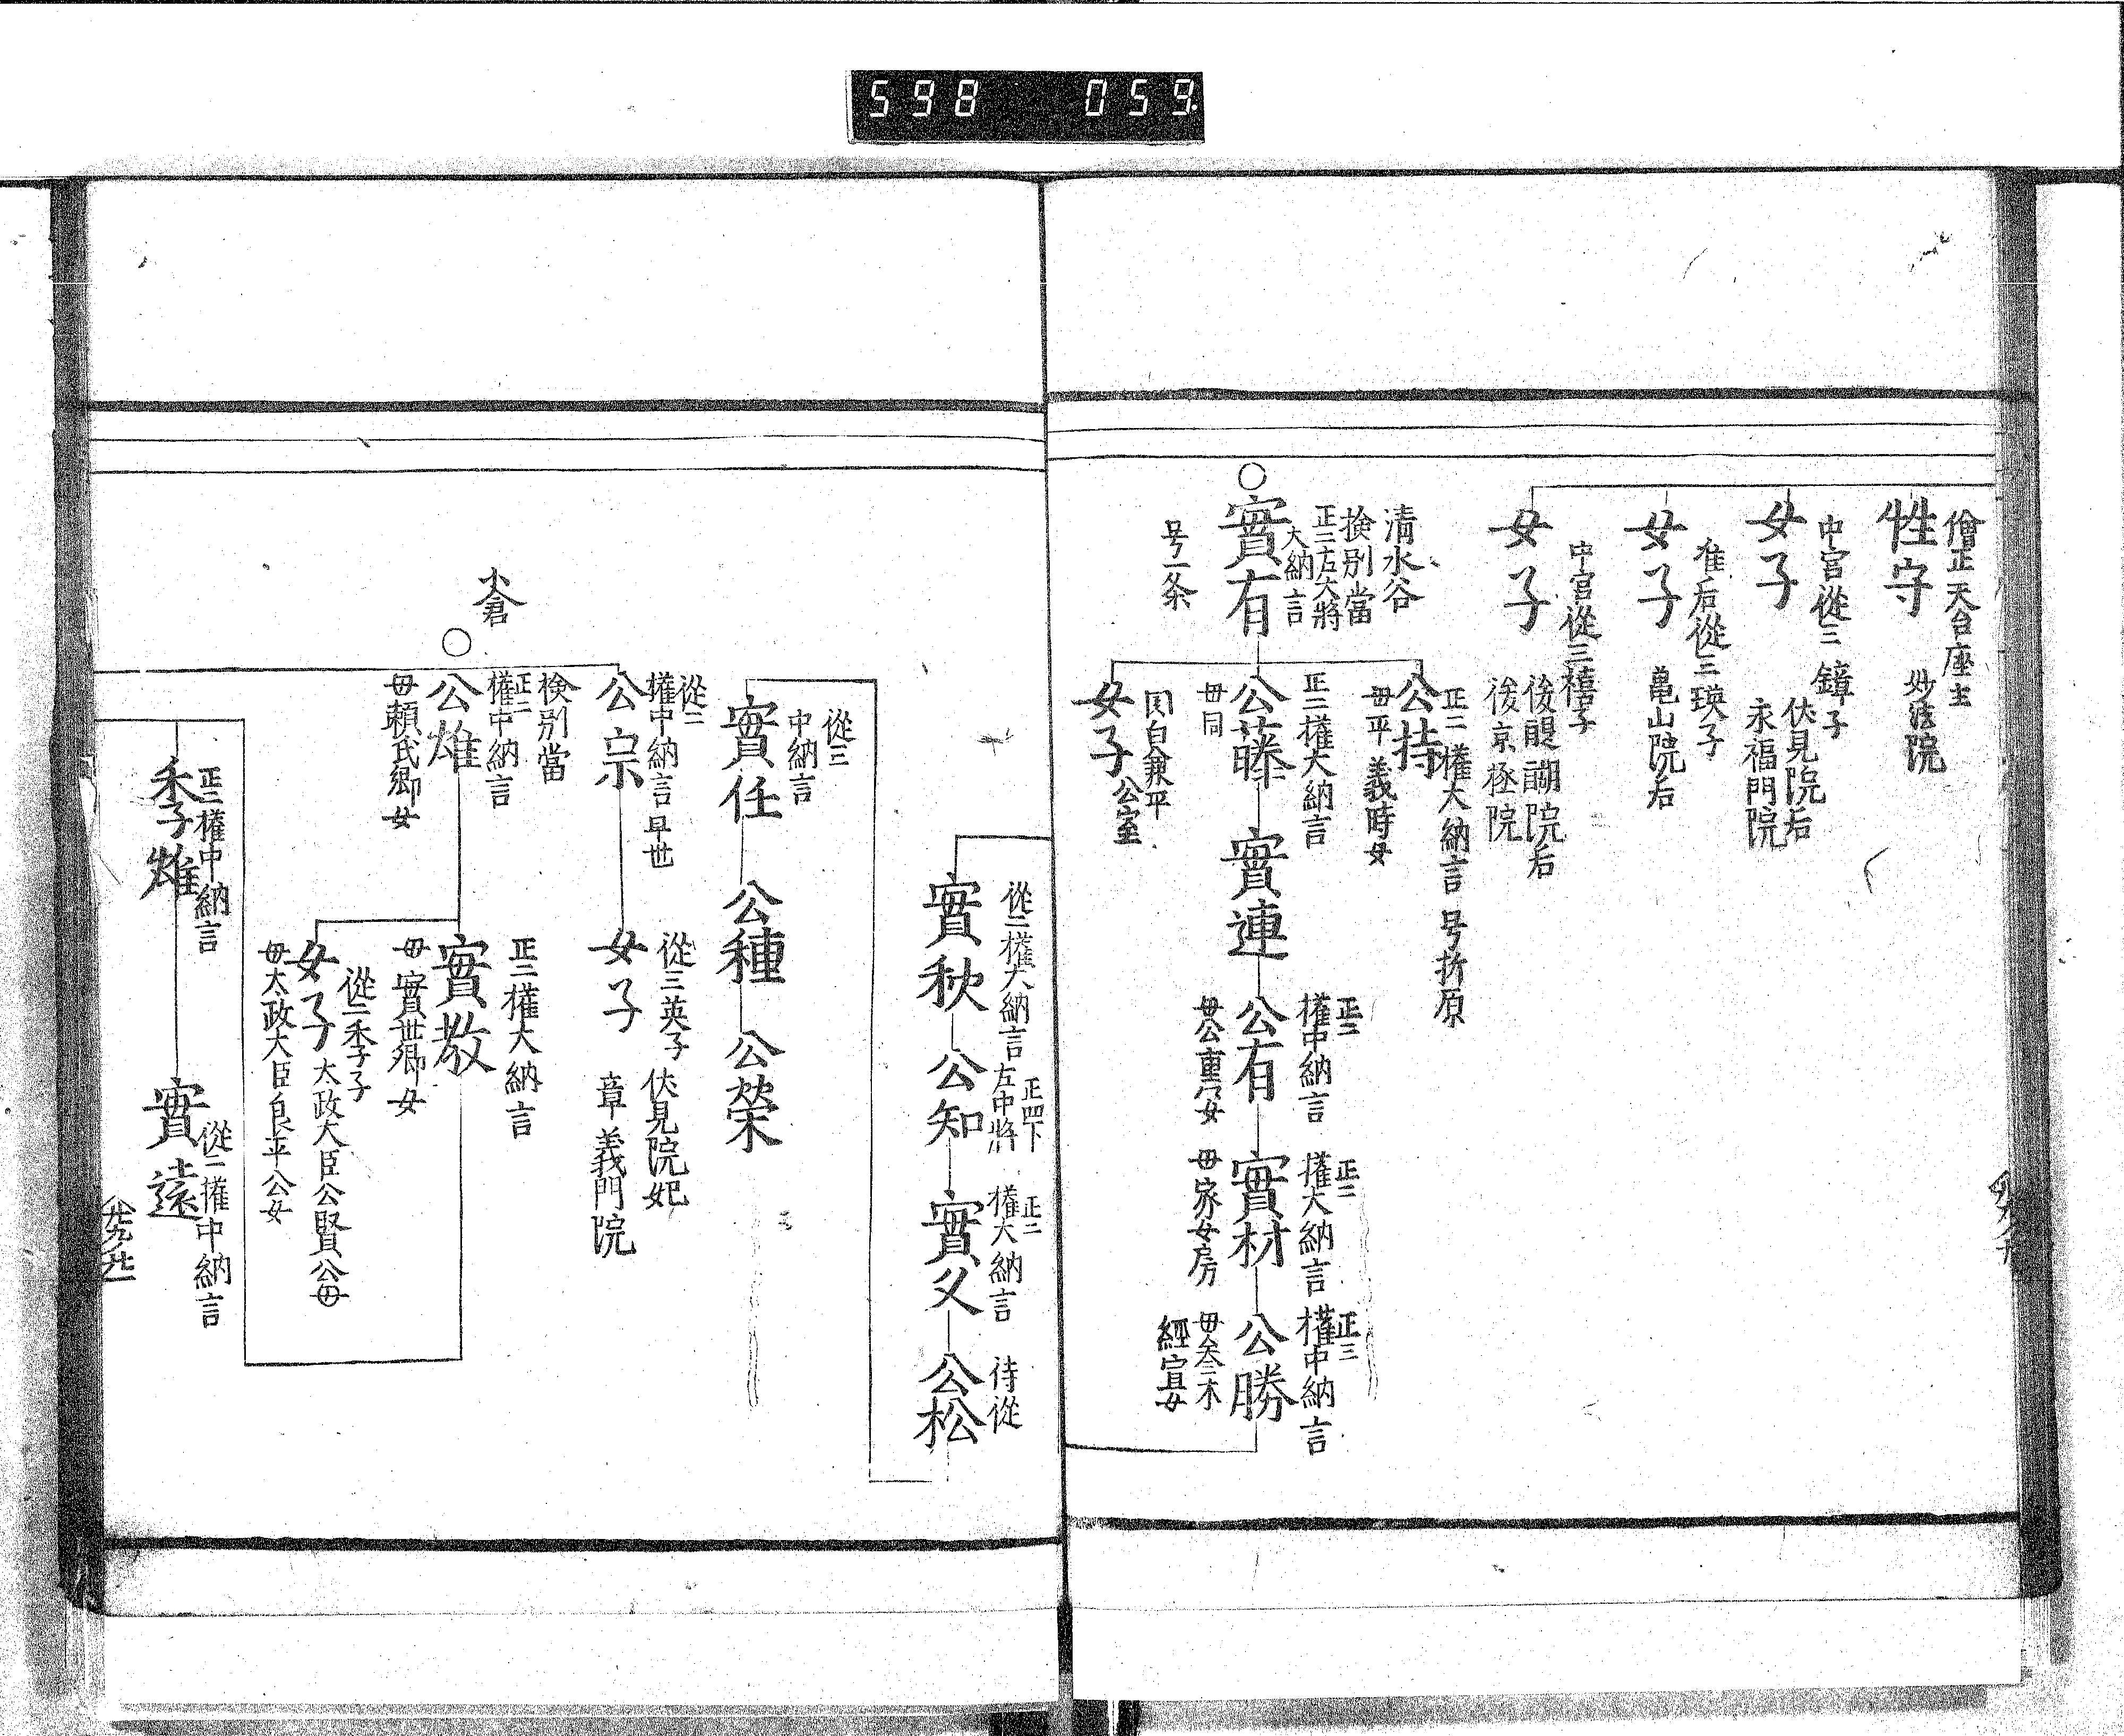 598 059
僧正天台座主
性守 妙法院
中宮從三 鏱子
女子 伏見院后
永福門院
准后從三瑛子
女子 亀山院后
中宮從三禧子
女子 後醍醐院后
後京極院
清水谷
検別當
正二右大將
大納言
○實有
号一条
正二權大納言 号折原
公持
母平義時女
正二權大納言
公藤
母同
女子 関白兼平公室
實連
正二
權中納言
公有
母公重公女
正二
權大納言
實材
母家女房
正三
權中納言
公勝
經宣女
從二權大納言
實秋
正四下
左中將
公知
正二
權大納言
實久
侍從
公松
從三
中納言
實任
公種
公榮
從二
權中納言 早世
公宗
從三英子 伏見院妃
女子 章義門院
小倉
○
検別當
正二
權中納言
公雄
母頼氏卿女
正二權大納言
實教
母實世卿女
從二季子
女子 太政大臣公賢公母
母太政大臣良平公女
正二權中納言
季雄
從二權中納言
實遠